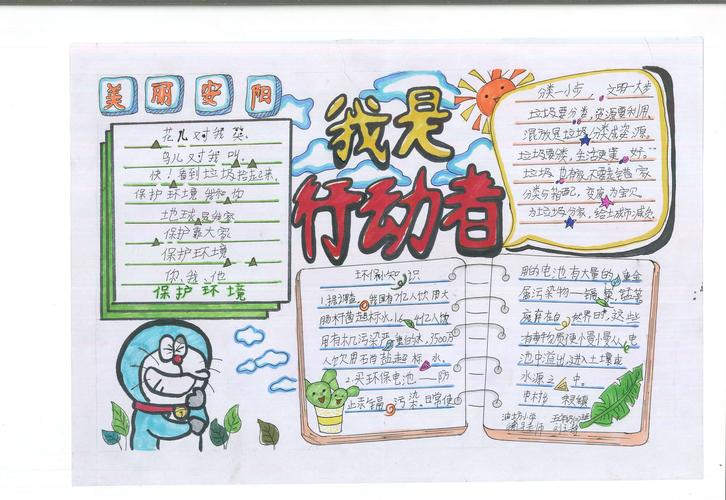 美丽安阳
我是
行动者
花儿对我笑
鸟儿对我叫
快！看到垃圾捡起来
保护环境
地球是我家
保护靠大家
保护环境
你、我、他
保护环境
分类一小步，文明一大步
垃圾要分类，资源要利用
混放是垃圾，分类成资源
垃圾要分类，生活更美好
分类与搭配，变废为宝贝
为垃圾分家，给城市减负
环保小知识
1.据调查，我国有7亿人饮用大
肠杆菌超标水，1.64亿人饮
用有机污染严重的水，3500万
人饮用硝酸盐超标水。
2.买环保电池——防
止汞镉污染。日常使
用的电池有大量的重金
属污染物——镉、汞、锰等
废弃在自然界时，这些
有毒物质便慢慢从电
池中溢出，进入土壤或
水源之中。